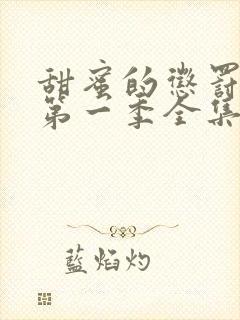 甜蜜的懲罰
第一季全集
藍焰灼